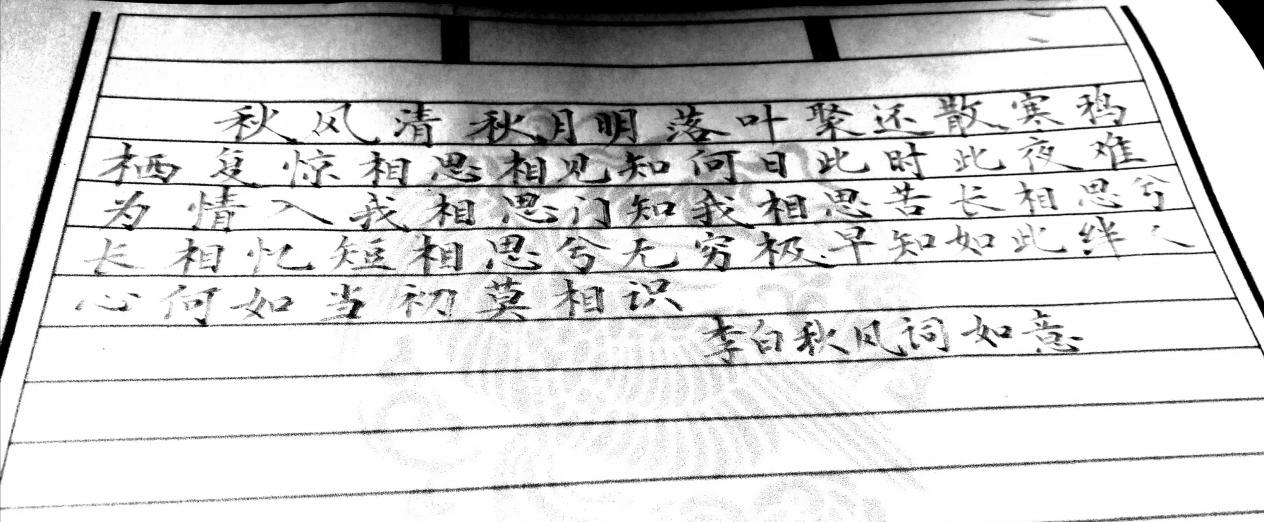 秋风清秋月明落叶聚还散寒鸦
栖复惊相思相见知何日此时此夜难
为情入我相思门知我相思苦长相思兮
长相忆短相思兮无穷极早知如此绊人
心何如当初莫相识
李白秋风词如意